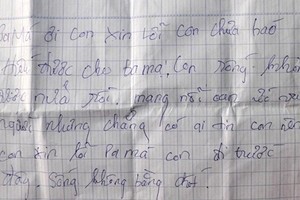 đi con xin lỗi con chưa báo
hiếu được cho ba má. con không
được nữa rồi. mang nỗi oan
người nhưng chẳng có ai tin con nên
con xin lỗi ba má con đi trước
đây. sống không bằng chết.